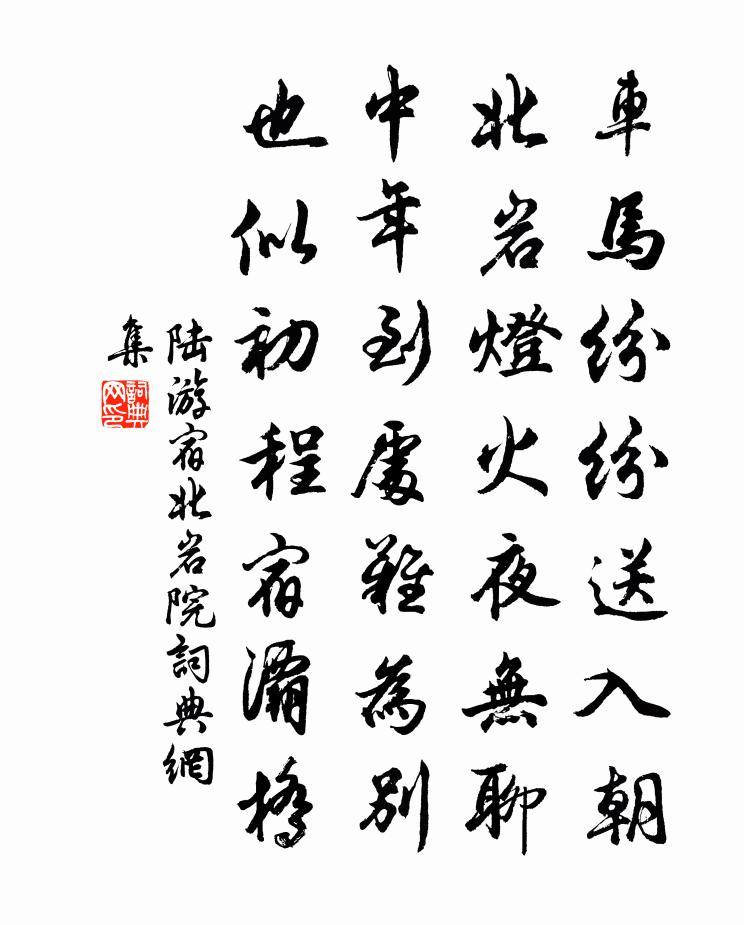 車馬紛紛送入朝
北岩燈火夜無聊
中年到處難為別
也似初程宿灞橋
陆游宿北岩院詞典網
集
詞典
网印